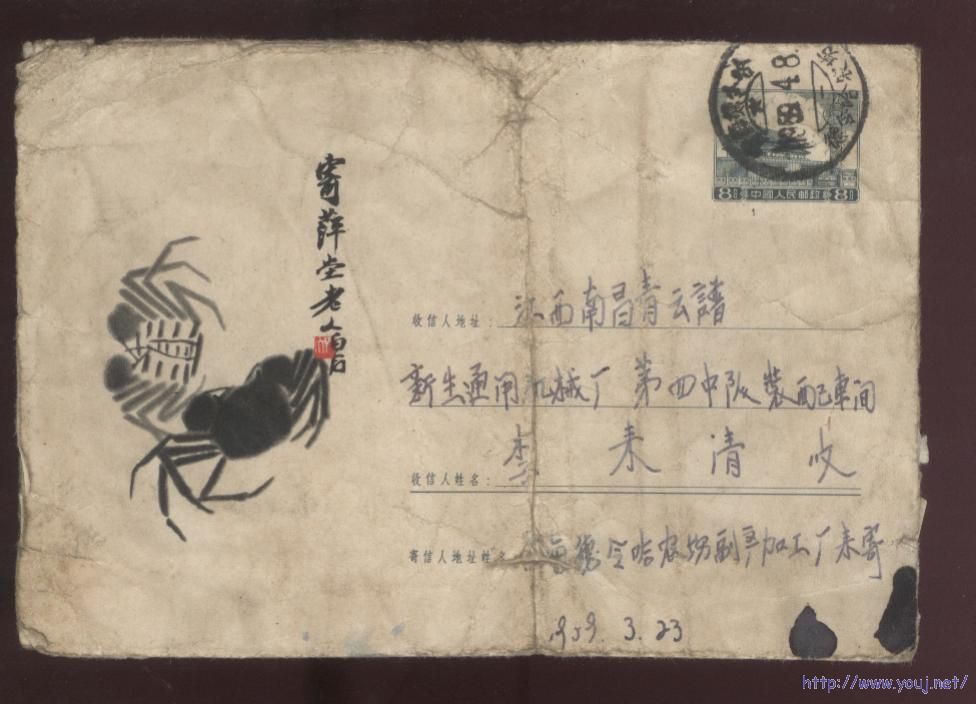 寄萍堂老人白石
中國人民郵政
8 8
1959 4 8
收信人地址：江西南昌青云譜
新生通用机械厂 第四中队 裝配車间
收信人姓名：李 来 清 收
寄信人地址姓名 德令哈农场副产加工厂 来寄
1959. 3. 23
http://www.youj.net/